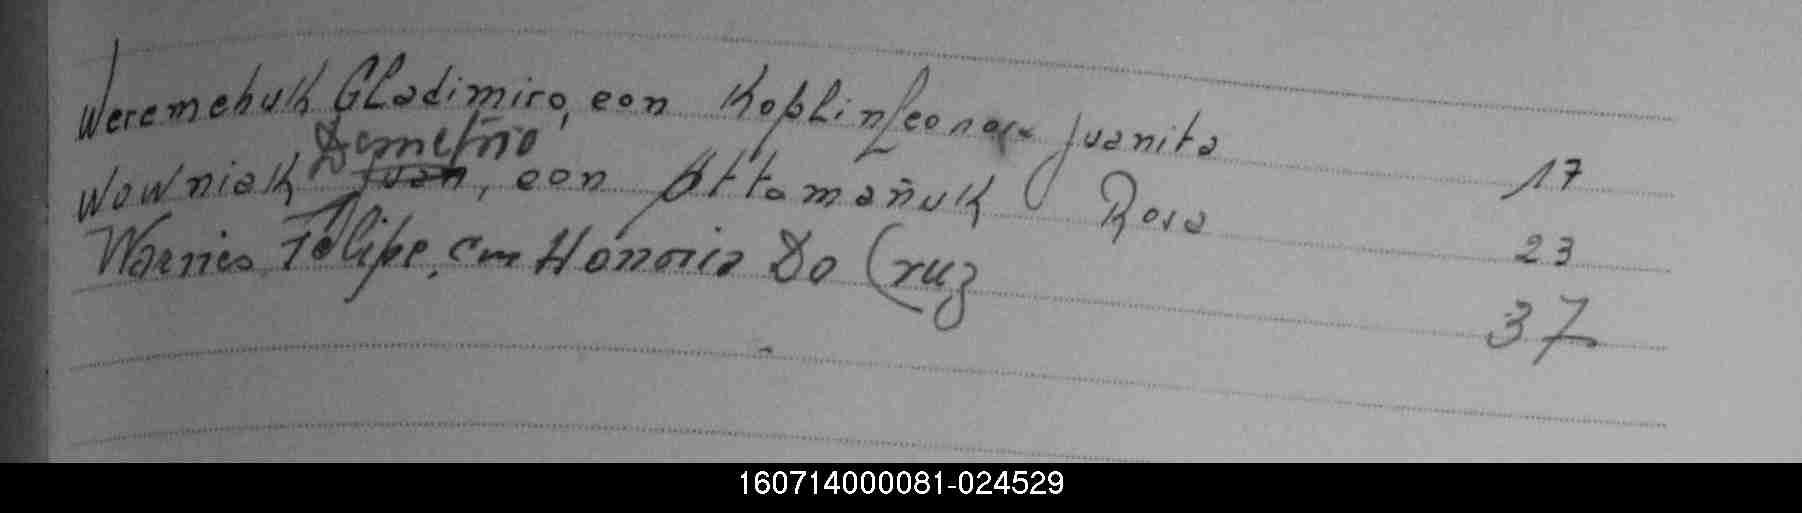 Weremchuk Gladimiro, con Koplin Leonora Juanita 17
Wowniak Demetrio Juan, con Attamañuk Rosa 23
Warnies Felipe, Cm Honoria Do Cruz 37
160714000081-024529